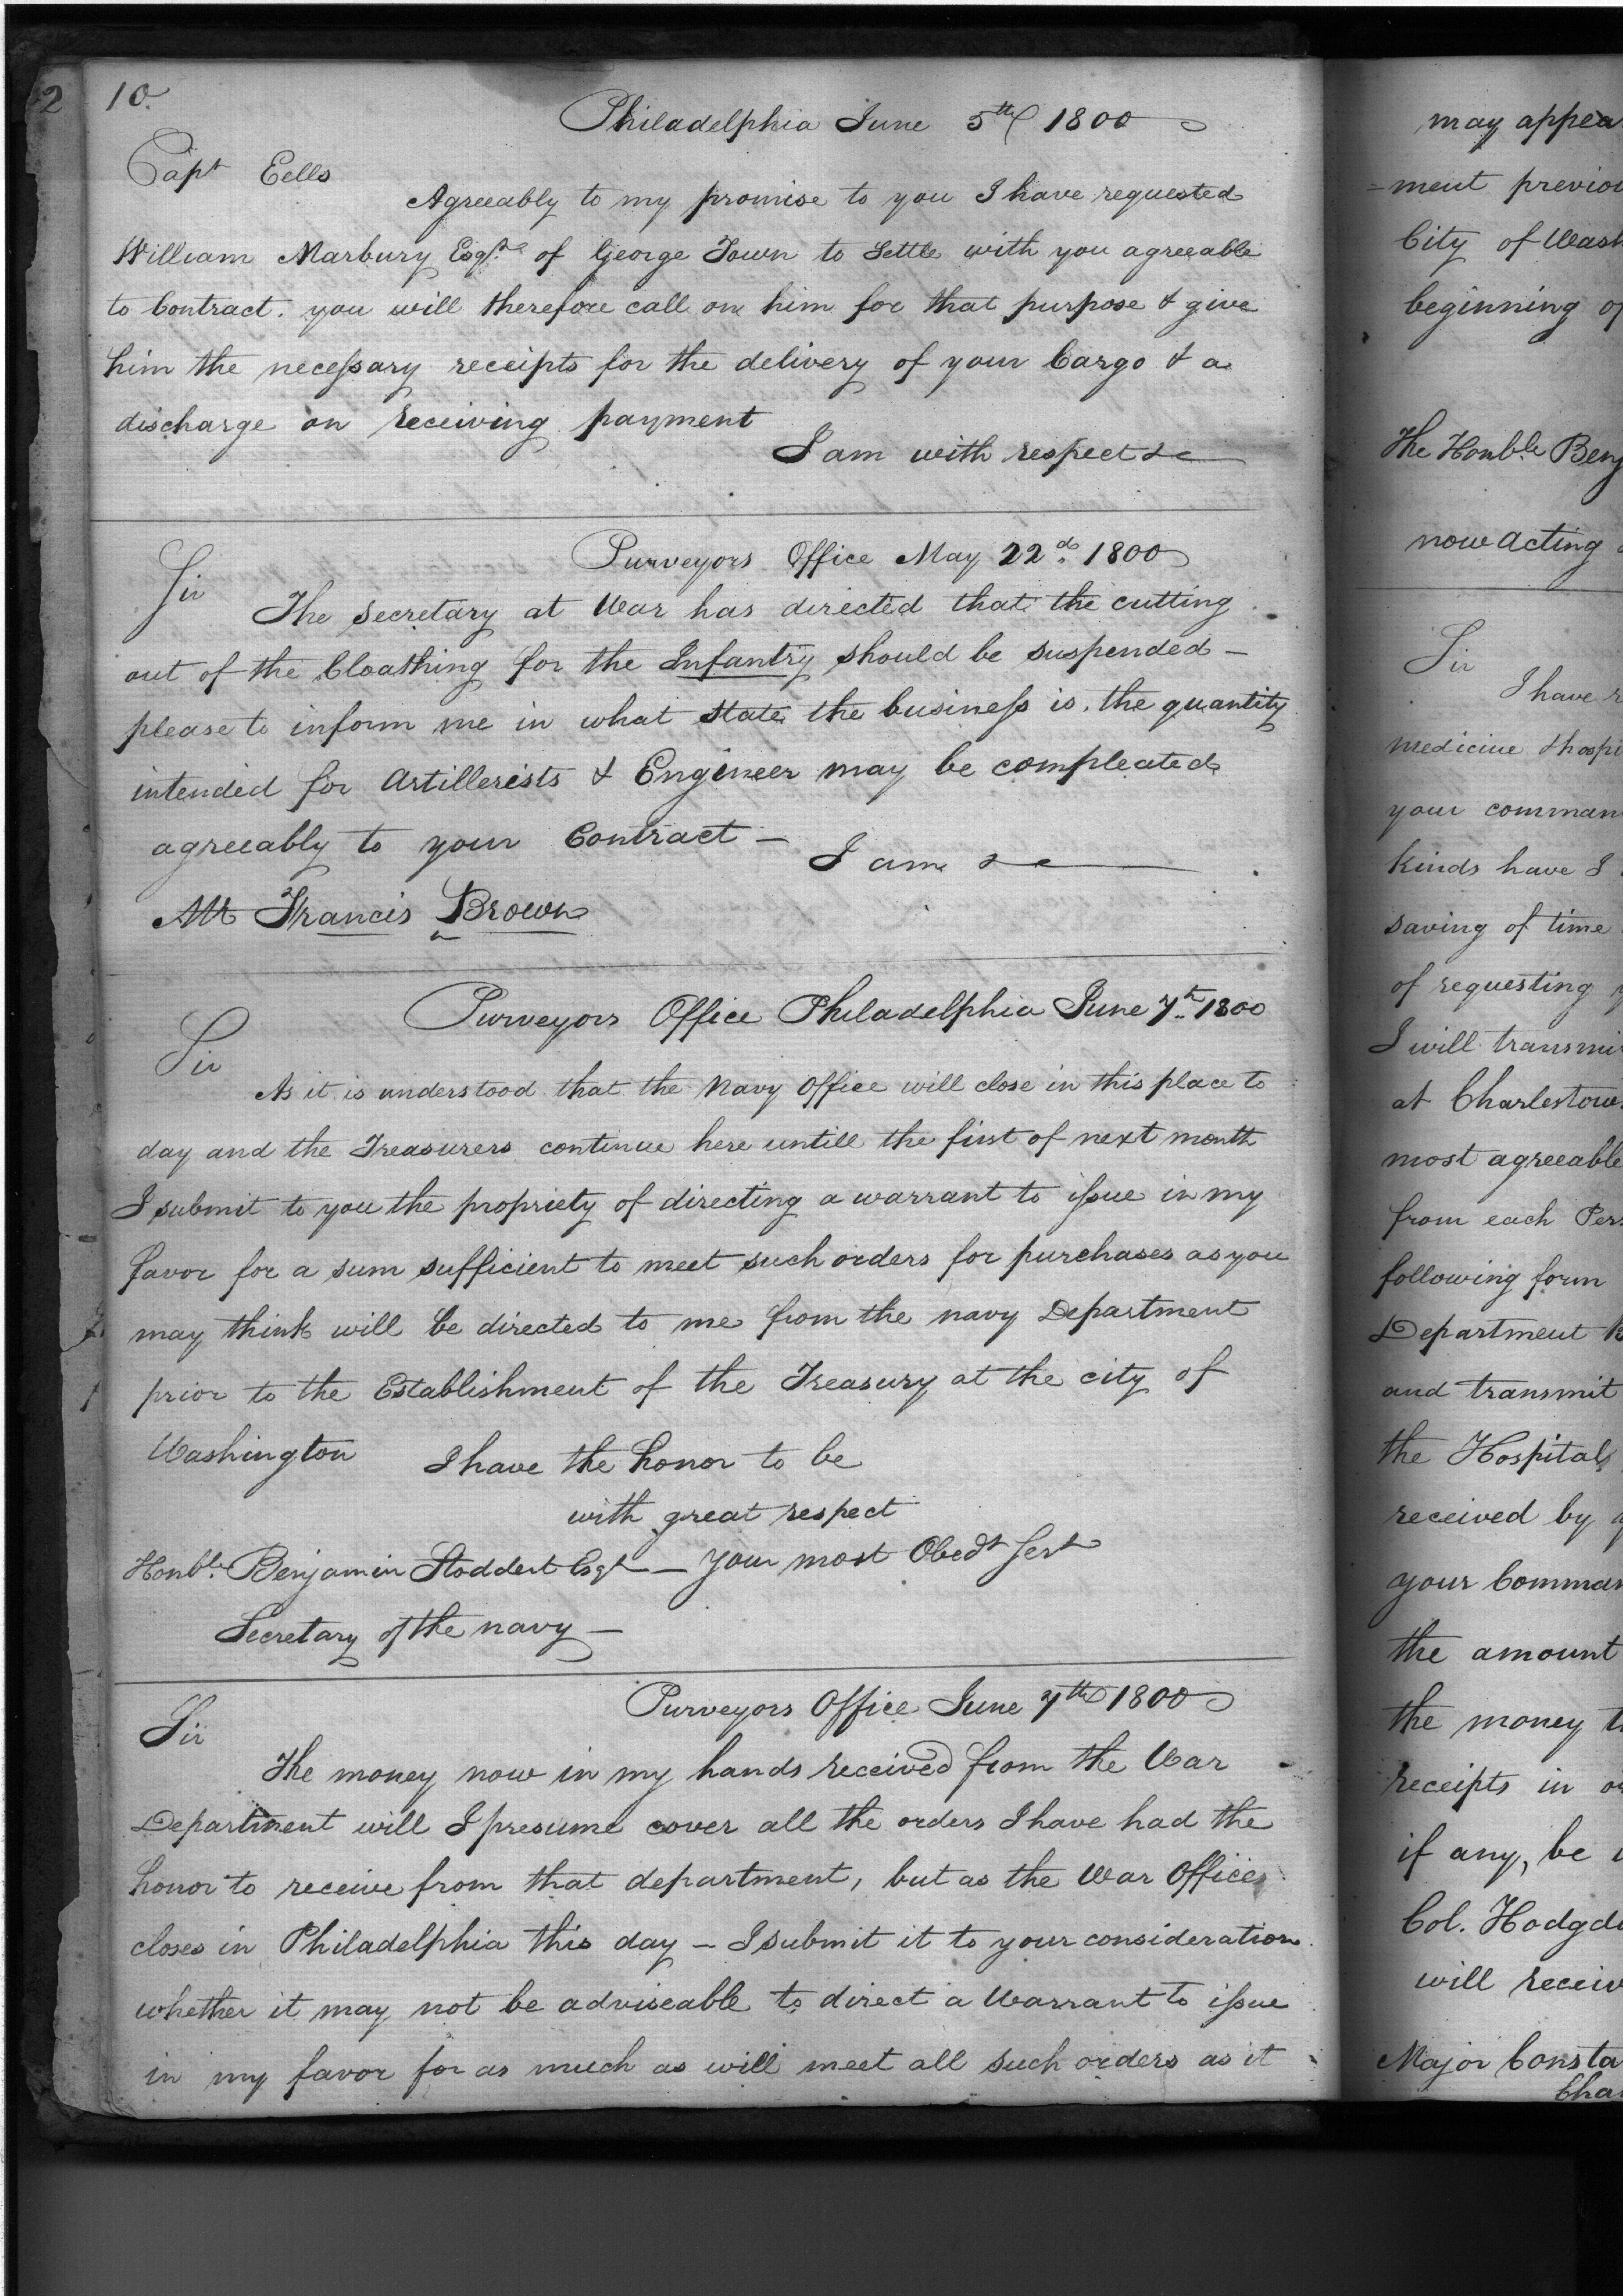 2
10.
Philadelphia June 5th 1800
Capt Eells
Agreeably to my promise to you I have requested
William Marbury Esqr. of George Town to Settle with you agreeable
to Contract. you will therefore call on him for that purpose & give
him the necessary receipts for the delivery of your Cargo & a
discharge on receiving payment
I am with respect &c
Purveyors Office May 22d. 1800
Sir
The Secretary at War has directed that the cutting
out of the Cloathing for the Infantry should be suspended –
please to inform me in what state the business is. the quantity
intended for Artillerists & Engineer may be compleated
agreeably to your Contract –
I am &c
Mr Francis Brown
Purveyors Office Philadelphia June 7th 1800
Sir
As it is understood that the Navy Office will close in this place to
day and the Treasurers continue here untill the first of next month
I submit to you the propriety of directing a warrant to issue in my
favor for a sum sufficient to meet such orders for purchases as you
may think will be directed to me from the navy Department
prior to the Establishment of the Treasury at the city of
Washington I have the honor to be
with great respect
Honble. Benjamin Stoddert Esqr – your most Obedt Sert
Secretary of the navy –
Purveyors Office June 7th 1800
Sir
The money now in my hands received from the War
Department will I presume cover all the orders I have had the
honor to receive from that department, but as the War Office
closes in Philadelphia this day – I submit it to your consideration
whether it may not be adviseable to direct a Warrant to issue
in my favor for as much as will meet all such orders as it
may appea
=ment previou
City of Wash
beginning of
The Honble Benj
now acting
Sir
I have
medicine & hospi
your comman
kinds have I
saving of time
of requesting
I will transmi
at Charlestow
most agreeable
from each Pers
following form
Department
and transmit
the Hospital
received by
your Comman
the amount
the money t
receipts in o
if any, be
Col. Hodgd
will receiv
Major Consta
Cha